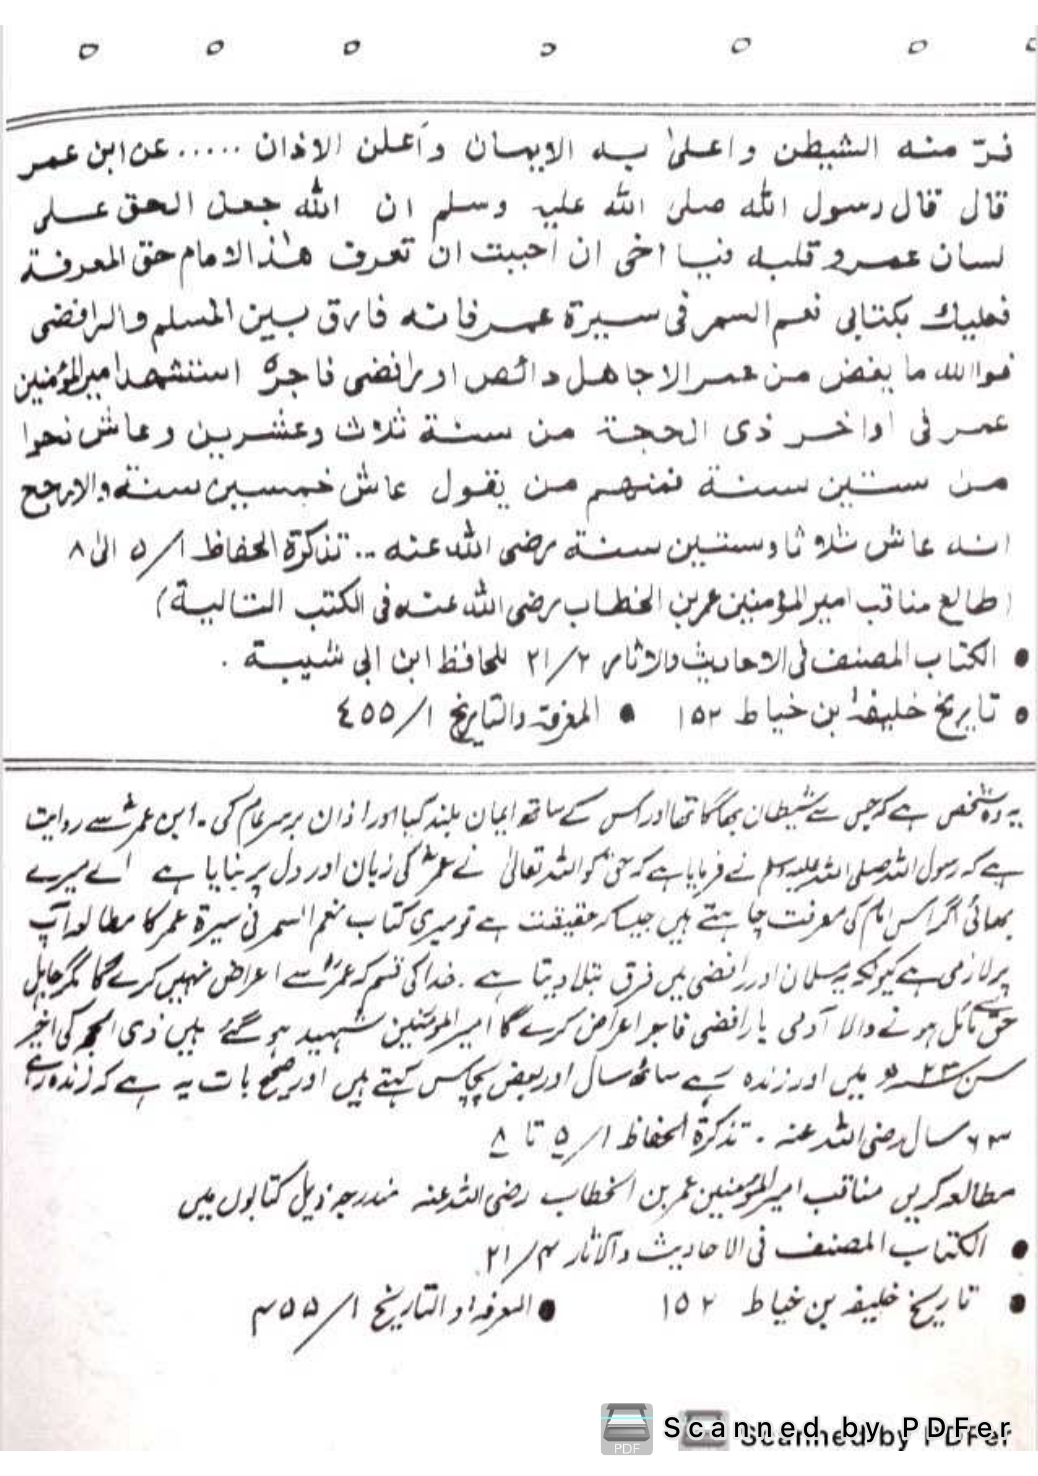 فرّ منه الشيطن واعلیٰ به الايمان وأعلن الاذان ..... عن ابن عمر
قال قال رسول الله صلى الله عليه وسلم ان الله جعل الحق على
لسان عمر و قلبه فيا اخى ان احببت ان تعرف هذا الامام حق المعرفة
فعليك بكتابى نعم السمر فى سيرة عمر فانه فارق بين المسلم والرافضى
فوالله ما يغض من عمر الا جاهل دائص او رافضى فاجر استشهد امير المؤمنين
عمر فى اواخر ذى الحجة من سنة ثلاث وعشرين وعاش نحوا
من ستين سنة فمنهم من يقول عاش خمسين سنة والارجح
انه عاش ثلاثا وستين سنة رضى الله عنه .. تذكرة الحفاظ ۱/ ۵ الى ۸
(طالع مناقب امير المؤمنين عمر بن الخطاب رضى الله عنه فى الكتب التالية)
● الكتاب المصنف فى الاحاديث والاثار ۲۱/۲ للحافظ ابن ابى شيبة .
● تاريخ خليفة بن خياط ۱۵۲ ● المعرفة والتاريخ ۱/ ٤۵۵
یہ وہ شخص ہے کہ جس سے شیطان بھاگا تھا اور اس کے ساتھ ایمان بلند کیا اور اذان برسرعام کی ۔ ابن عمرؓ سے روایت
ہے کہ رسول اللہ صلی اللہ علیہ وسلم نے فرمایا ہے کہ حق کو اللہ تعالیٰ نے عمرؓ کی زبان اور دل پر بنایا ہے اے میرے
بھائی اگر اس امام کی معرفت چاہتے ہیں جیسا کہ حقیقت ہے تو میری کتاب نعم السمر فی سیرۃ عمر کا مطالعہ آپ
پر لازمی ہے کیونکہ یہ مسلمان اور رافضی میں فرق بتلا دیتا ہے ۔ خدا کی قسم کہ عمرؓ سے اعراض نہیں کرے گا مگر جاہل
حق سے مائل ہونے والا آدمی یا رافضی فاجر اعراض کرے گا امیر المؤمنین شہید ہو گئے ہیں ذی الحجہ کی اخیر
سن ۲۳ھ میں اور زندہ رہے ساٹھ سال اور بعض پچاس کہتے ہیں اور صحیح بات یہ ہے کہ زندہ رہے
۶۳ سال رضی اللہ عنہ ۔ تذکرۃ الحفاظ ۱/ ۵ تا ۸
مطالعہ کریں مناقب امیر المؤمنین عمر بن الخطاب رضی اللہ عنہ مندرجہ ذیل کتابوں میں
● الکتاب المصنف فی الاحادیث والآثار ۲۱/۳
● تاریخ خلیفہ بن خیاط ۱۵۲ ● المعرفۃ و التاریخ ۱/ ۴۵۵
Scanned by PDFer
Scanned by PDFer
PDF